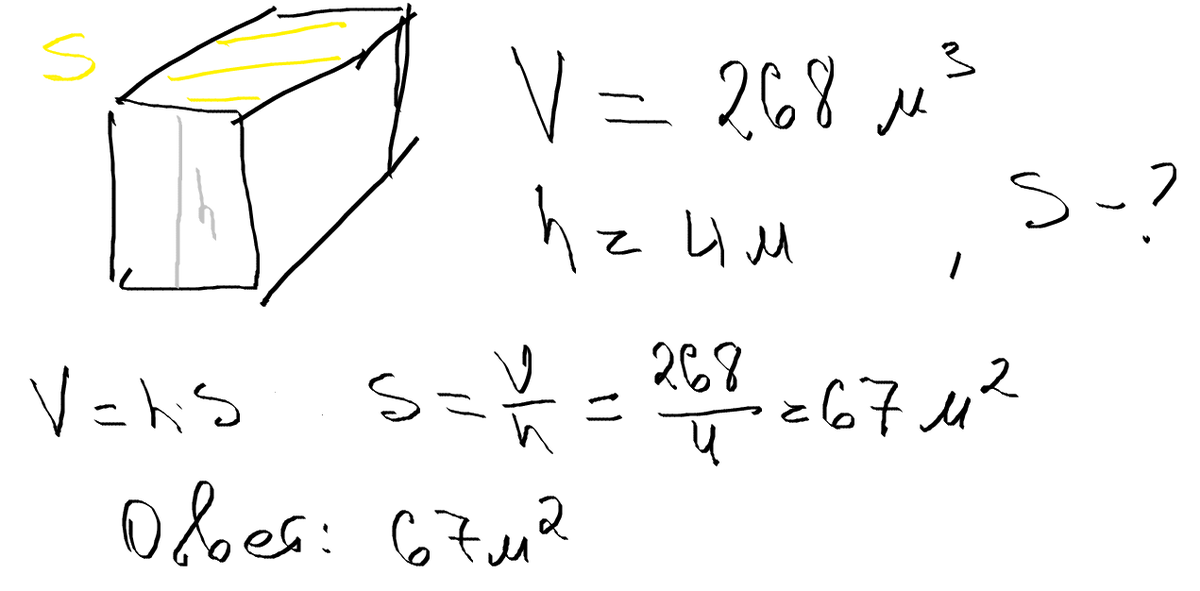 S
h
V = 268 м³
h = 4 м, S - ?
V = h·S S = V/h = 268/4 = 67 м²
Ответ: 67 м²